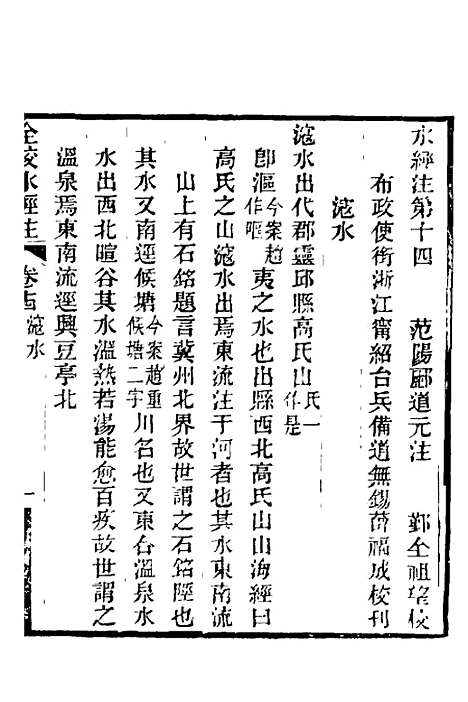 水經注第十四　范陽酈道元注　鄞全祖望校
布政使銜浙江甯紹台兵備道無錫薛福成校刊
滱水
滱水出代郡靈邱縣高氏山氏一作是
卽漚今案趙作嘔夷之水也出縣西北高氏山山海經曰
高氏之山滱水出焉東流注于河者也其水東南流
山上有石銘題言冀州北界故世謂之石銘陘也
其水又南逕候塘今案趙重候塘二字川名也又東合溫泉水
水出西北暄谷其水溫熱若湯能愈百疾故世謂之
溫泉焉東南流逕興豆亭北
全校水經注　卷十四　滱水　一